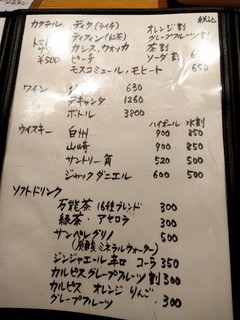 税込
カクテル ディタ(ライチ) オレンジ割
ディフィン(紅茶) グレープフルーツ割
カシス,ウォッカ 茶割
¥500 ピーチ ソーダ割
モスコミュール,モヒート 650
ワイン 630
デキャンタ 1260
ボトル 3800
ハイボール 水割
ウイスキー 白州 900 850
山崎 900 850
サントリー角 520 500
ジャックダニエル 600 500
ソフトドリンク
万能茶 16種ブレンド 300
緑茶・アセロラ 300
サンペレグリノ 500
(炭酸ミネラルウォーター)
ジンジャエール辛口 コーラ 350
カルピスグレープフルーツ割 300
カルピス オレンジ りんご
グレープフルーツ 300